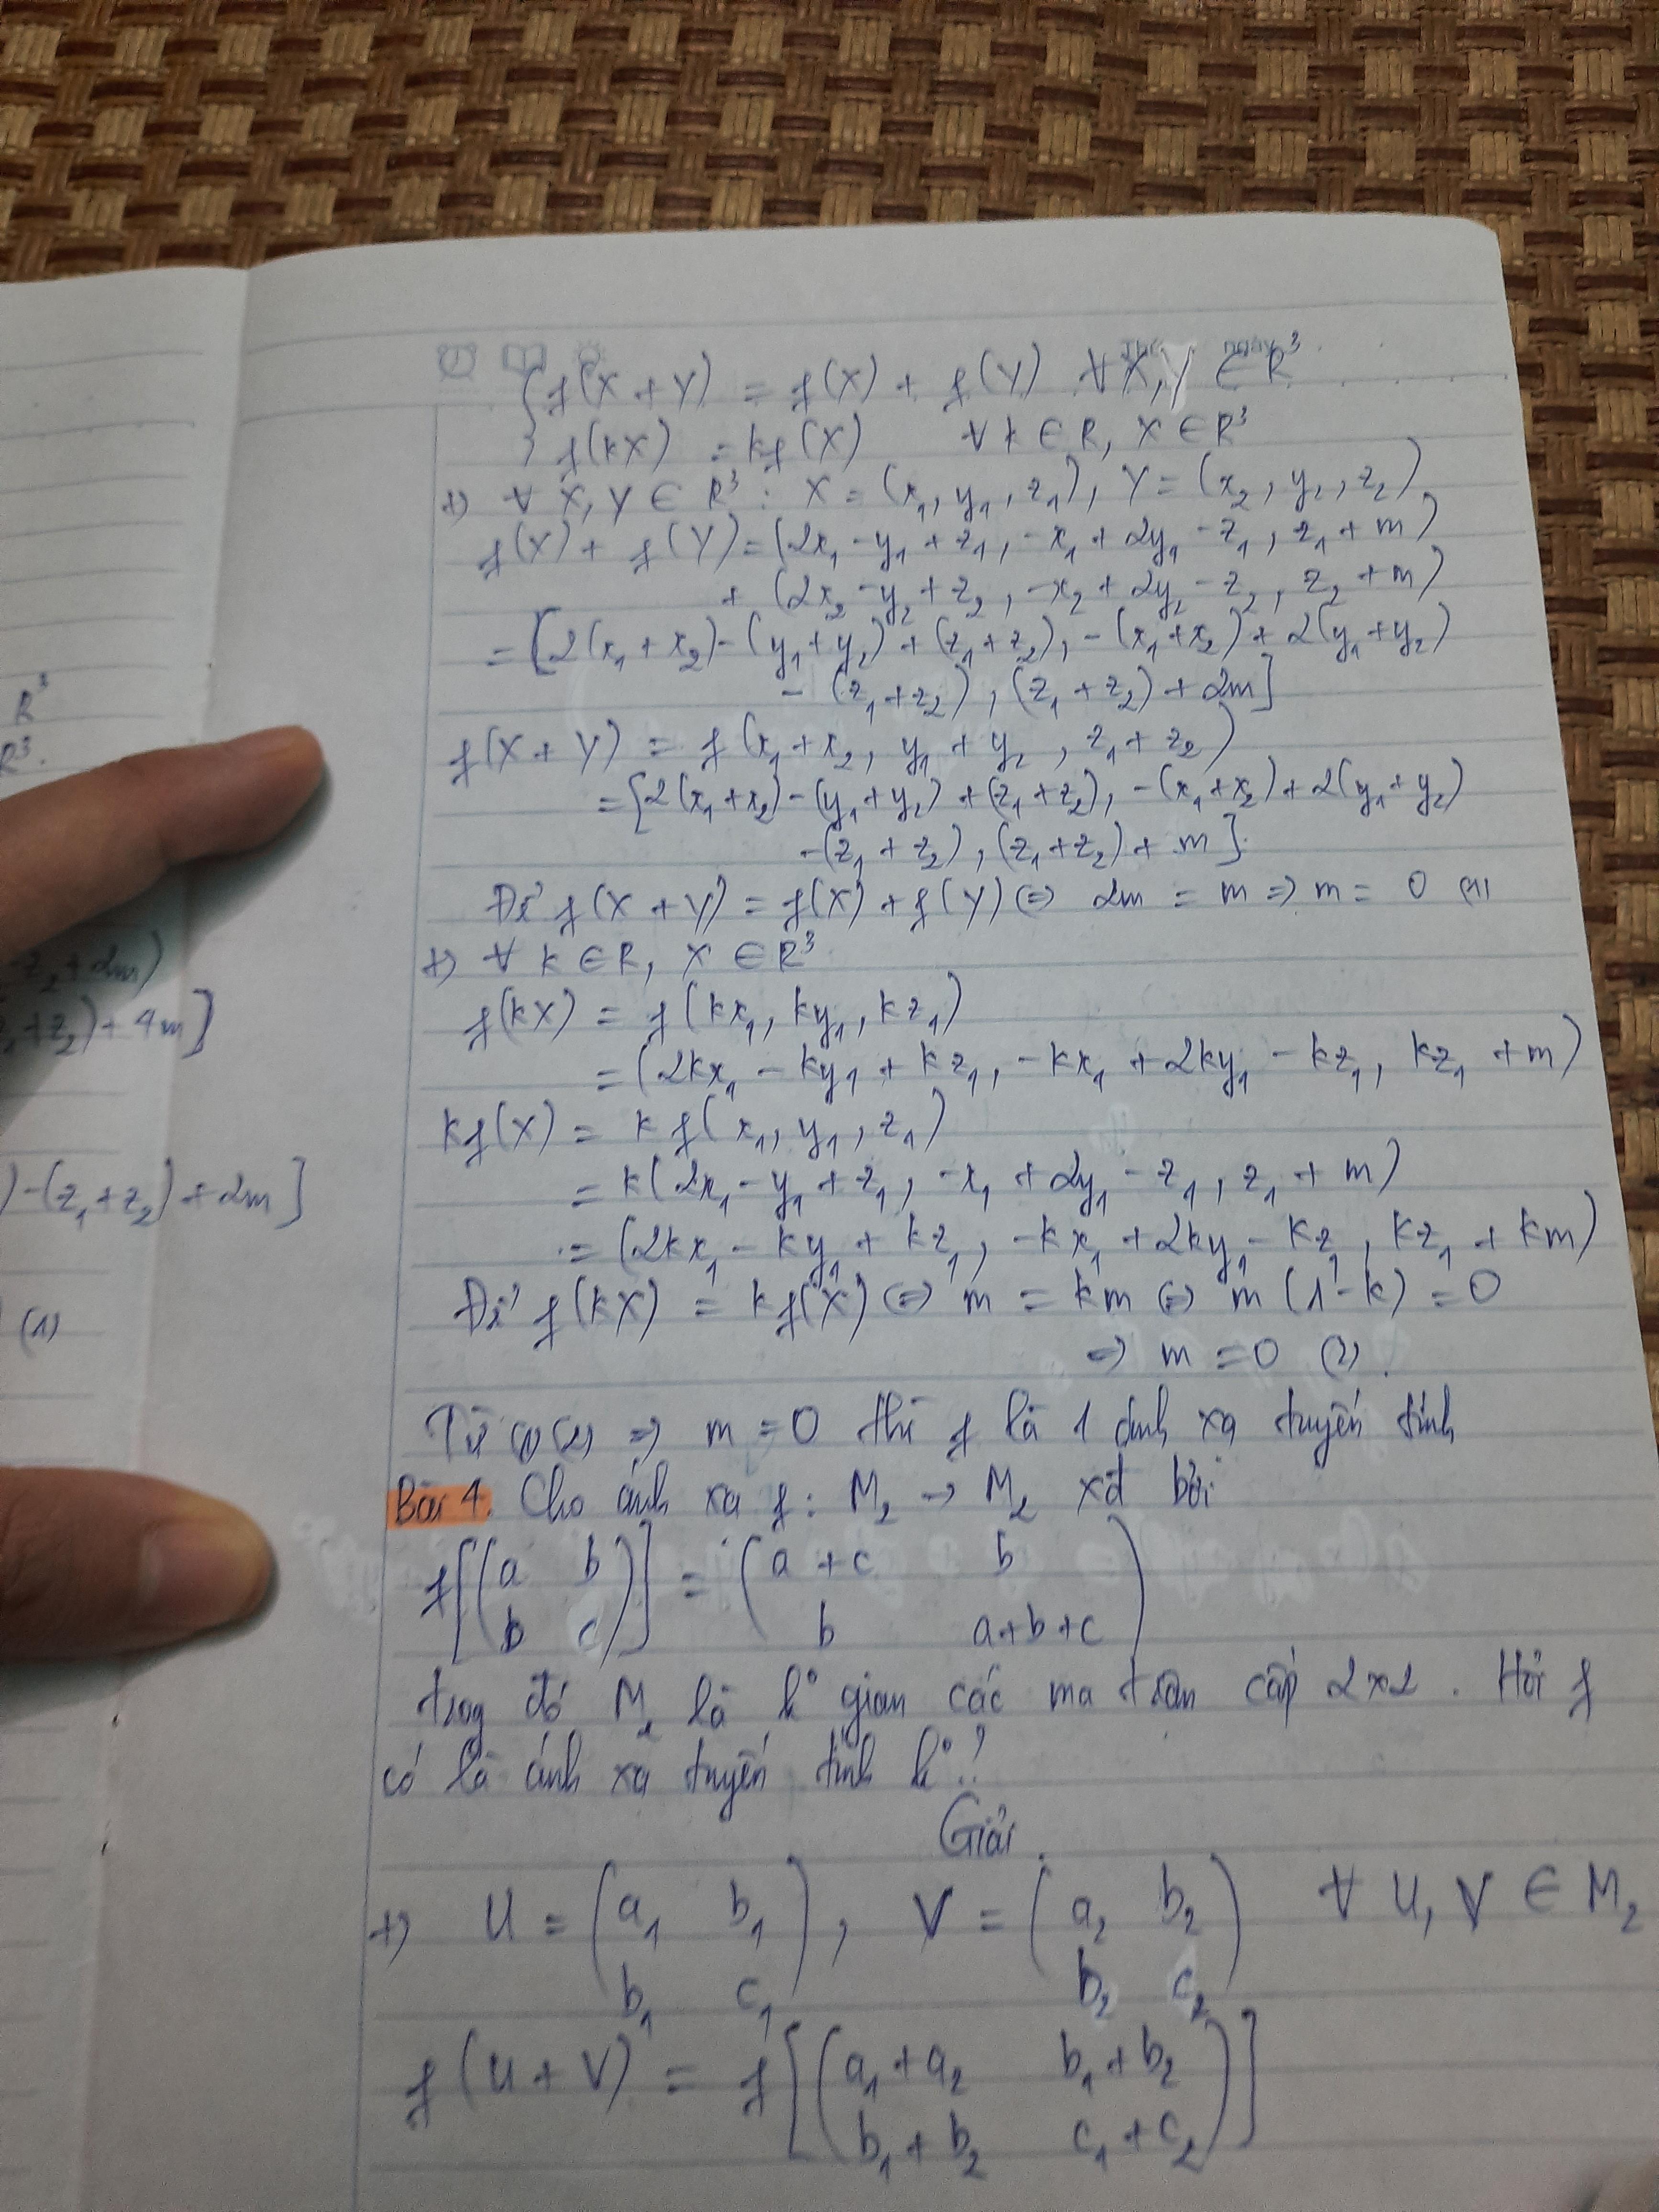 Thứ ngày
{ f(X + Y) = f(X) + f(Y) ∀ X, Y ∈ R³
f(kX) = kf(X) ∀ k ∈ R, X ∈ R³
+) ∀ X, Y ∈ R³ : X = (x₁, y₁, z₁), Y = (x₂, y₂, z₂)
f(X) + f(Y) = (2x₁ - y₁ + z₁, -x₁ + 2y₁ - z₁, z₁ + m)
+ (2x₂ - y₂ + z₂, -x₂ + 2y₂ - z₂, z₂ + m)
= [2(x₁ + x₂) - (y₁ + y₂) + (z₁ + z₂), -(x₁ + x₂) + 2(y₁ + y₂)
- (z₁ + z₂), (z₁ + z₂) + 2m]
f(X + Y) = f(x₁ + x₂, y₁ + y₂, z₁ + z₂)
= [2(x₁ + x₂) - (y₁ + y₂) + (z₁ + z₂), -(x₁ + x₂) + 2(y₁ + y₂)
-(z₁ + z₂), (z₁ + z₂) + m].
Để f(X + Y) = f(X) + f(Y) ⇔ 2m = m ⇒ m = 0 (1)
+) ∀ k ∈ R, X ∈ R³
f(kX) = f(kx₁, ky₁, kz₁)
= (2kx₁ - ky₁ + kz₁, -kx₁ + 2ky₁ - kz₁, kz₁ + m)
kf(X) = kf(x₁, y₁, z₁)
= k(2x₁ - y₁ + z₁, -x₁ + 2y₁ - z₁, z₁ + m)
= (2kx₁ - ky₁ + kz₁, -kx₁ + 2ky₁ - kz₁, kz₁ + km)
Để f(kX) = kf(X) ⇔ m = km ⇔ m(1 - k) = 0
⇒ m = 0 (2).
Từ (1)(2) ⇒ m = 0 thì f là 1 ánh xạ tuyến tính
Bài 4. Cho ánh xạ f : M₂ → M₂ xđ bởi
f[(a b
b c)] = (a + c b
b a+b+c)
trong đó M₂ là k° gian các ma trận cấp 2x2. Hỏi f
có là ánh xạ tuyến tính k°?
Giải.
+) U = (a₁ b₁
b₁ c₁), V = (a₂ b₂
b₂ c₂) ∀ U, V ∈ M₂
f(U + V) = f[(a₁ + a₂ b₁ + b₂
b₁ + b₂ c₁ + c₂)]
R³
R³.
-z₂ + 2m)
z₁ + z₂) + 4m]
) - (z₁ + z₂) + 2m]
(1)